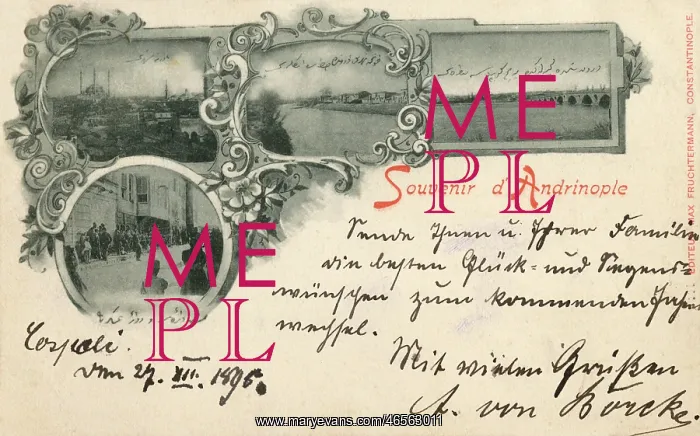 Souvenir d'Andrinople
EDITEUR MAX FRUCHTERMANN, CONSTANTINOPLE.
Sende Ihnen u. Ihrer Familie
die besten Glück- und Segens-
wünschen zum kommenden Jahres
wechsel.
Mit vielen Grüßen
A. von Borcke.
Cospoli.
den 27. XII. 1895.
ME
PL
ME
PL
www.maryevans.com/46568011